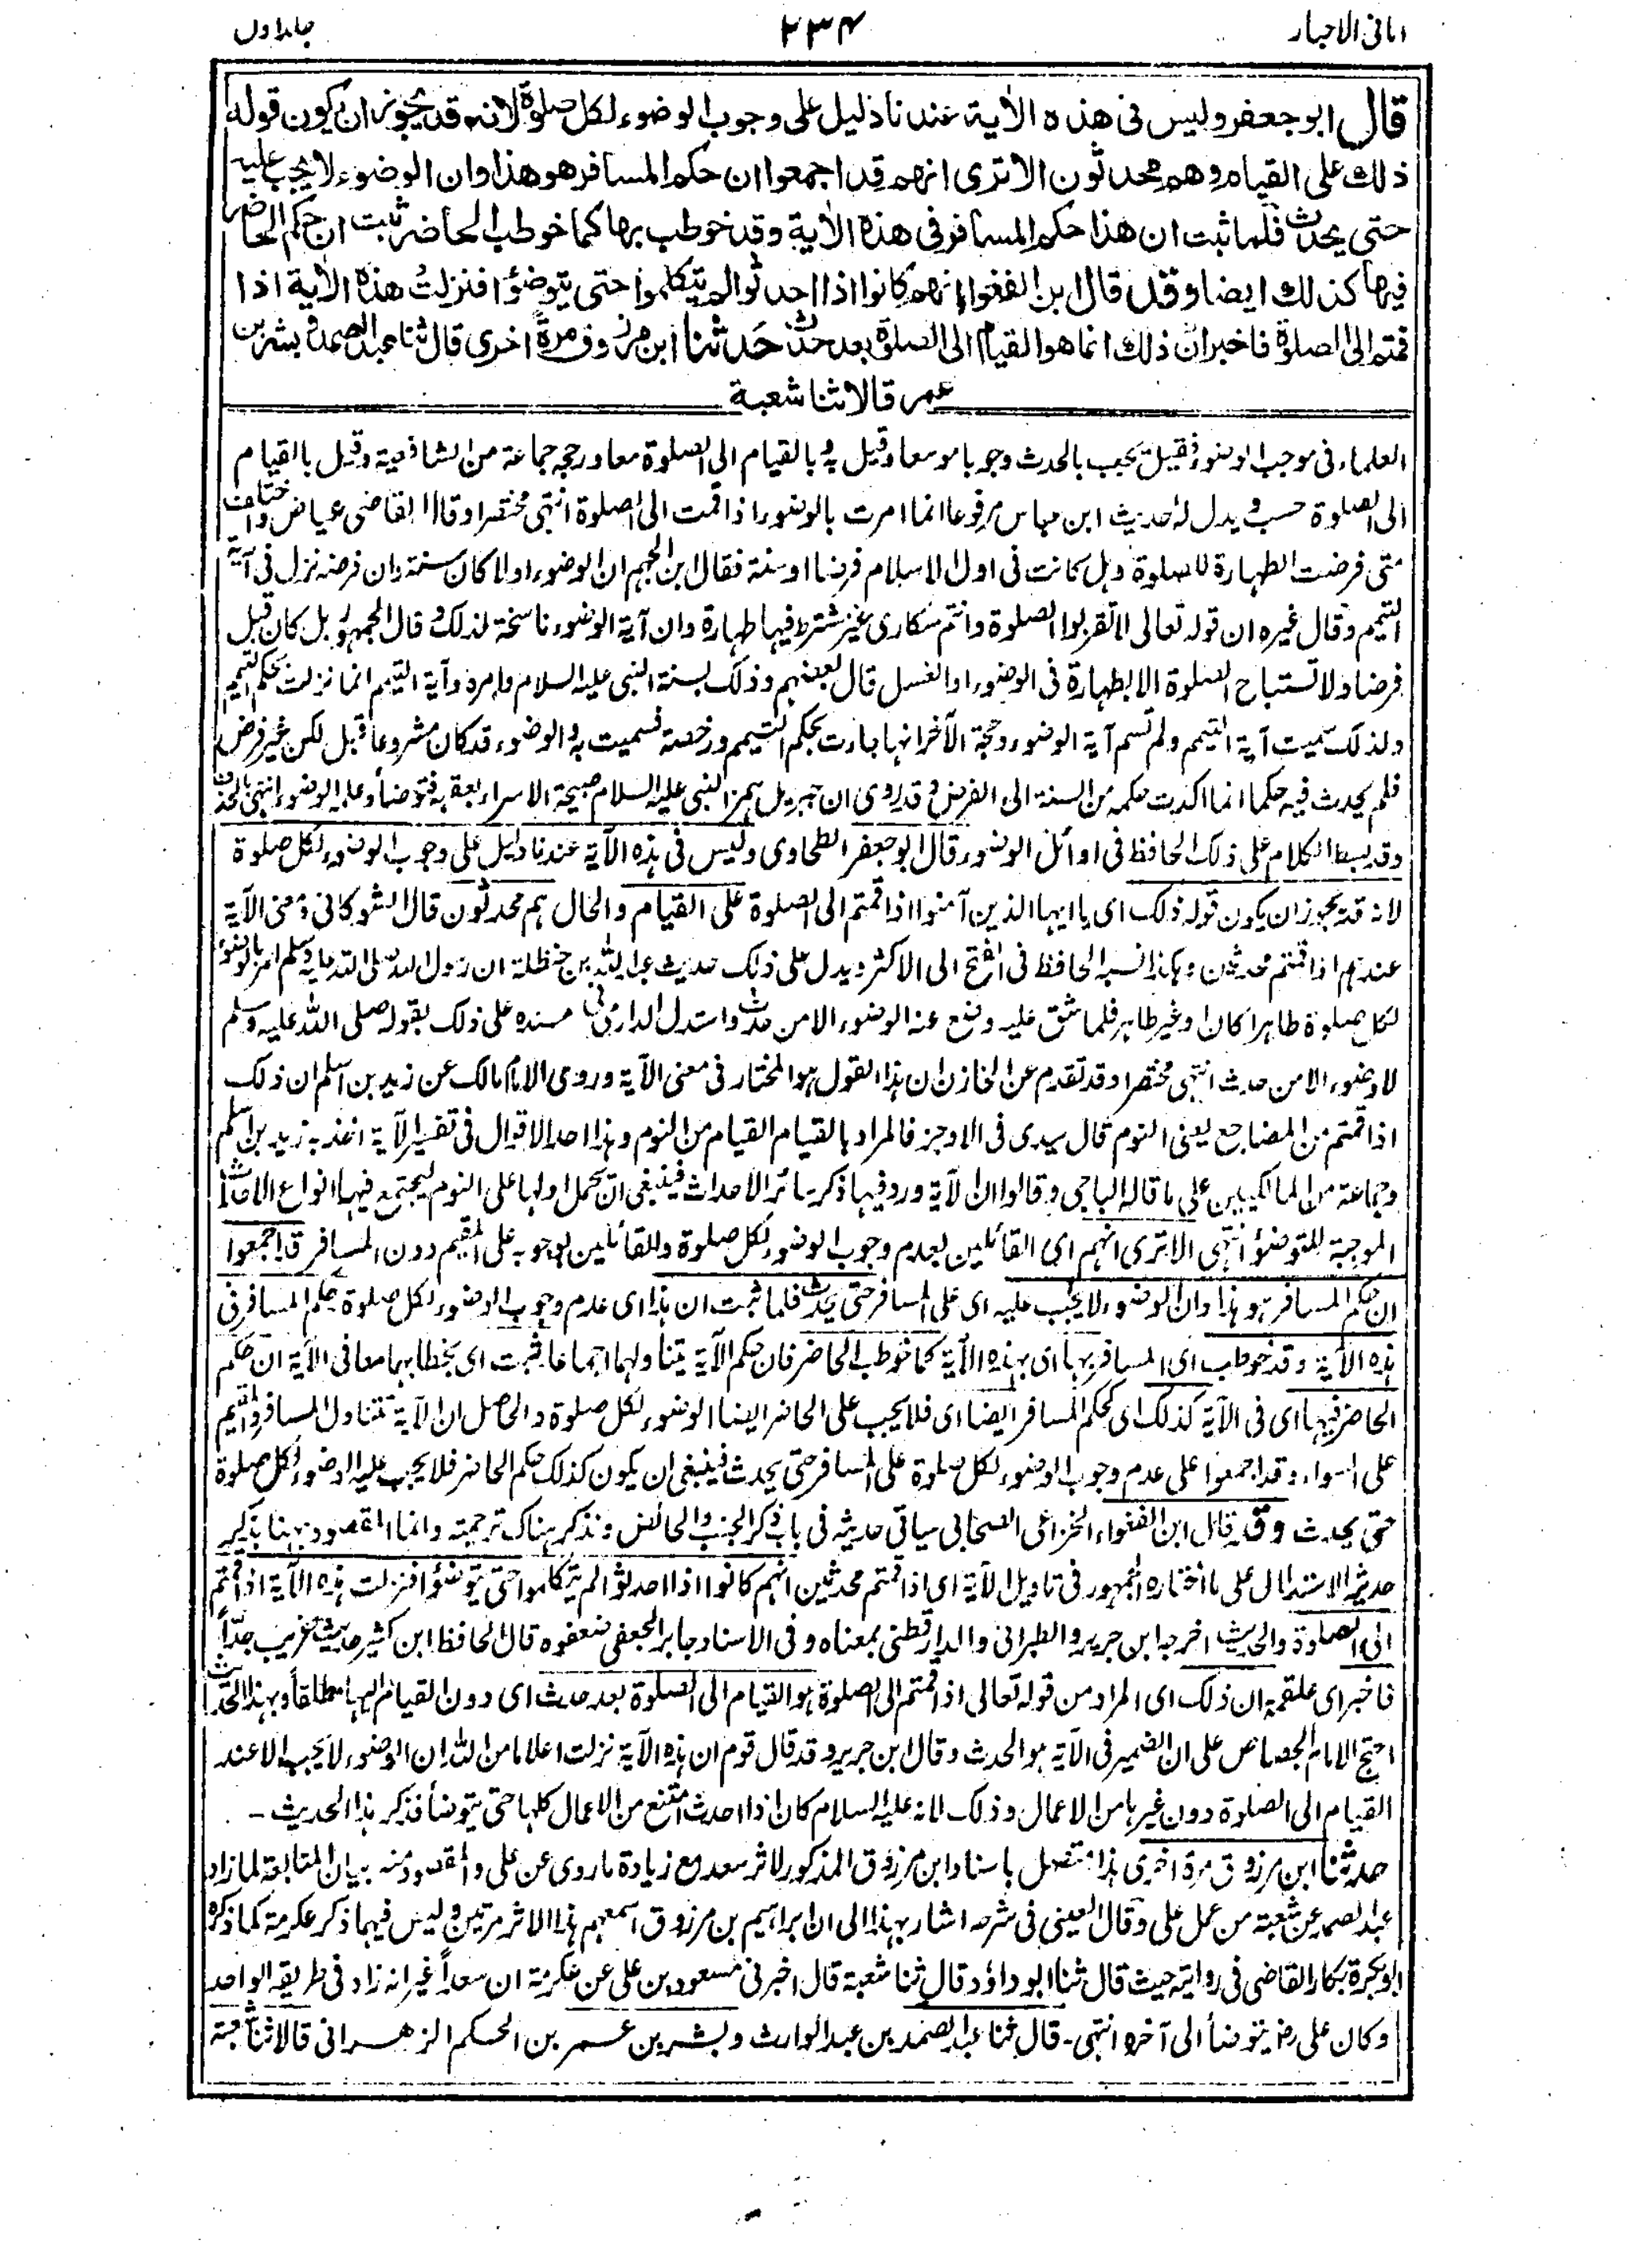 امانى الاحبار ٢٣٤ جلد اول
قال ابو جعفر وليس فى هذه الأية عندنا دليل على وجوب الوضوء لكل صلوة لانه قد يجوز ان يكون قوله
ذلك على القيام وهم محدثون الا ترى انهم قد اجمعوا ان حكم المسافر هو هذا وان الوضوء لا يجب عليه
حتى يحدث فلما ثبت ان هذا حكم المسافر فى هذه الأية وقد خوطب بها كما خوطب الحاضر ثبت ان حكم الحاضر
فيها كذلك ايضا وقد قال ابن الفغواء انهم كانوا اذا احدثوا لم يتكلموا حتى يتوضؤا فنزلت هذه الأية اذا
قمتم الى الصلوة فاخبر ان ذلك انما هو القيام الى الصلوة بعد حدث حدثنا ابن مرزوق مرةً اخرى قال ثنا عبد الصمد وبشر بن
عمر قالا ثنا شعبة
العلماء فى موجب الوضوء فقيل يجب بالحدث وجوبا موسعا وقيل به وبالقيام الى الصلوة معا ورجحه جماعة من الشافعية وقيل بالقيام
الى الصلوة حسب ويدل له حديث ابن عباس مرفوعا انما امرت بالوضوء اذا قمت الى الصلوة انتهى مختصرا وقال القاضى عياض واختلف
متى فرضت الطهارة للصلوة وهل كانت فى اول الاسلام فرضا او سنة فقال ابن الجهم ان الوضوء اولا كان سنة وان فرضه نزل فى آية
التيمم وقال غيره ان قوله تعالى لا تقربوا الصلوة وانتم سكارى غير مشترط فيها طهارة وان آية الوضوء ناسخة لذلك وقال الجمهور بل كان قبل
فرضا ولا تستباح الصلوة الا بطهارة فى الوضوء او الغسل قال بعضهم وذلك بسنة النبى عليه السلام وامره وآية التيمم انما نزلت بحكم التيمم
ولذلك سميت آية التيمم ولم تسم آية الوضوء وحجة الآخر انها جاءت بحكم التيمم ورخصته فسميت به والوضوء قد كان مشروعا قبل لكن غير فرض
فلم يحدث فيه حكما انما اكدت حكمه من السنة الى الفرض وقد روى ان جبريل همز النبى عليه السلام صبيحة الاسراء بعقبه فتوضأ وعلمه الوضوء انتهى بالحذف
وقد بسط الكلام على ذلك الحافظ فى اوائل الوضوء وقال ابو جعفر الطحاوى وليس فى هذه الآية عندنا دليل على وجوب الوضوء لكل صلوة
لانه قد يجوز ان يكون قوله ذلك اى يا ايها الذين آمنوا اذا قمتم الى الصلوة على القيام والحال هم محدثون قال الشوكانى ومعنى الآية
عندهم اذا قمتم محدثين وهكذا نسبه الحافظ فى الفتح الى الاكثر ويدل على ذلك حديث عبد الله بن حنظلة ان رسول الله صلى الله عليه وسلم امر بالوضوء
لكل صلوة طاهرا كان او غير طاهر فلما شق عليه وضع عنه الوضوء الا من حدث واستدل الدارمى فى مسنده على ذلك بقوله صلى الله عليه وسلم
لا وضوء الا من حدث انتهى مختصرا وقد تقدم عن الخازن ان هذا القول هو المختار فى معنى الآية وروى الامام مالك عن زيد بن اسلم ان ذلك
اذا قمتم من المضاجع يعنى النوم قال سيدى فى الاوجز فالمراد بالقيام القيام من النوم وهذا احد الاقوال فى تفسير الآية اخذ به زيد بن اسلم
وجماعة من المالكيين على ما قاله الباجى وقالوا ان الآية ورد فيها ذكر سائر الاحداث فينبغى ان تحمل اولها على النوم ليجتمع فيها انواع الاحداث
الموجبة للتوضؤ انتهى الا ترى انهم اى القائلين بعدم وجوب الوضوء لكل صلوة والقائلين لوجوبه على المقيم دون المسافر قد اجمعوا
ان حكم المسافر هو هذا وان الوضوء لا يجب عليه اى على المسافر حتى يحدث فلما ثبت ان هذا اى عدم وجوب الوضوء لكل صلوة حكم المسافر فى
هذه الآية وقد خوطب اى المسافر بها اى بهذه الآية كما خوطب الحاضر فان حكم الآية يتناولهما اجماعا ثبت اى بخطابهما معا فى الآية ان حكم
الحاضر فيها اى فى الآية كذلك اى كحكم المسافر ايضا اى فلا يجب على الحاضر ايضا الوضوء لكل صلوة والحاصل ان الآية تتناول المسافر والمقيم
على السواء وقد اجمعوا على عدم وجوب الوضوء لكل صلوة على المسافر حتى يحدث فينبغى ان يكون كذلك حكم الحاضر فلا يجب عليه الوضوء لكل صلوة
حتى يحدث وقد قال ابن الفغواء الخزاعى الصحابى سياتى حديثه فى باب ذكر الجنب والحائض ونذكر هناك ترجمته وانما المقصود ههنا بذكر
حديثه الاستدلال على ما اختاره الجمهور فى تاويل الآية اى اذا قمتم محدثين انهم كانوا اذا احدثوا لم يتكلموا حتى يتوضؤا فنزلت هذه الآية اذا قمتم
الى الصلوة والحديث اخرجه ابن جرير والطبرانى والدارقطنى بمعناه وفى الاسناد جابر الجعفى ضعفوه قال الحافظ ابن كثير حديث غريب جداً
فاخبر اى علقمة ان ذلك اى المراد من قوله تعالى اذا قمتم الى الصلوة هو القيام الى الصلوة بعد حدث اى دون القيام اليها مطلقاً وبهذا الحديث
احتج الامام الجصاص على ان الضمير فى الآية هو الحدث وقال ابن جرير وقد قال قوم ان هذه الآية نزلت اعلاما من الله ان الوضوء لا يجب الا عند
القيام الى الصلوة دون غيرها من الاعمال وذلك لانه عليه السلام كان اذا احدث امتنع من الاعمال كلها حتى يتوضأ فذكر هذا الحديث -
حدثنا ابن مرزوق مرة اخرى هذا متصل باسناد ابن مرزوق المذكور لاثر سعد مع زيادة ما روى عن على والمقصود منه بيان المتابعة لما زاد
عبد الصمد عن شعبة من عمل على وقال العينى فى شرحه اشار بهذا الى ان ابراهيم بن مرزوق اسمعهم هذا الاثر مرتين وليس فيهما ذكر عكرمة كما ذكره
ابو بكرة بكار القاضى فى روايته حيث قال ثنا ابو داؤد قال ثنا شعبة قال اخبرنى مسعود بن على عن عكرمة ان سعداً غير انه زاد فى طريقه الواحد
وكان على رض يتوضأ الى آخره انتهى - قال ثنا عبد الصمد بن عبد الوارث وبشر بن عمر بن الحكم الزهرانى قالا ثنا شعبة